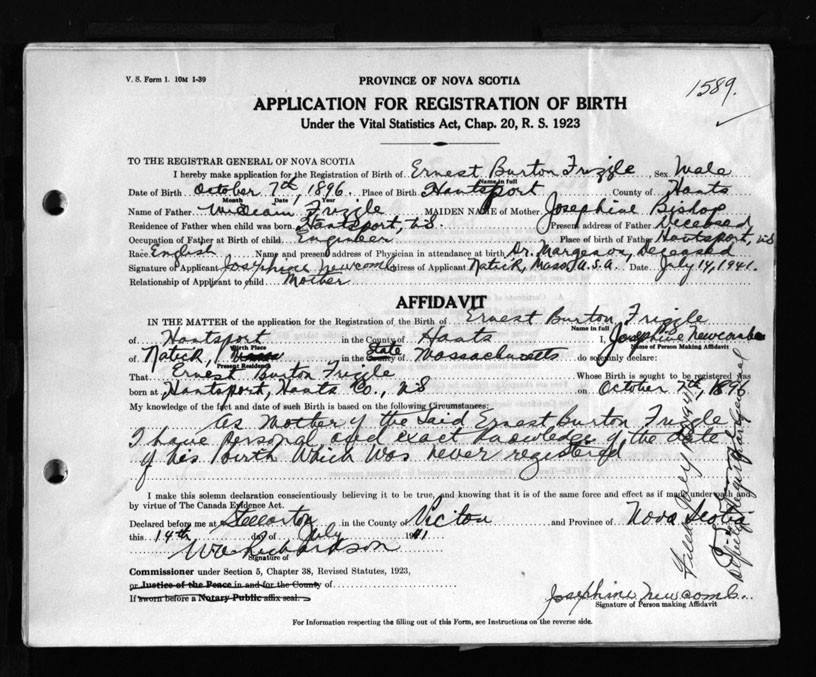 V. S. Form 1. 10M 1-39
1589.
PROVINCE OF NOVA SCOTIA
APPLICATION FOR REGISTRATION OF BIRTH
Under the Vital Statistics Act, Chap. 20, R. S. 1923
TO THE REGISTRAR GENERAL OF NOVA SCOTIA
I hereby make application for the Registration of Birth of Ernest Burton Frizzle, Sex Male
Name in full
Date of Birth October 7th, 1896. Place of Birth Hantsport County of Hants
Month Date Year
Name of Father William Frizzle MAIDEN NAME of Mother Josephine Bishop
Residence of Father when child was born Hantsport, N.S. Present address of Father Deceased
Occupation of Father at Birth of child Engineer Place of birth of Father Hantsport, N.S
Race English Name and present address of Physician in attendance at birth Dr. Margeson, Deceased
Signature of Applicant Josephine Newcomb Address of Applicant Natick, Mass. U.S.A. Date July 14, 1941.
Relationship of Applicant to child Mother
AFFIDAVIT
IN THE MATTER of the application for the Registration of the Birth of Ernest Burton Frizzle
Name in full
of Hantsport in the County of Hants I, Josephine Newcombe
Birth Place Name of Person Making Affidavit
of Natick, in the County State Massachusetts do solemnly declare:
Present Residence
That Ernest Burton Frizzle Whose Birth is sought to be registered was
born at Hantsport, Hants Co., N.S on October 7th, 1896
My knowledge of the fact and date of such Birth is based on the following Circumstances:
As Mother of the Said Ernest Burton Frizzle
I have personal and exact knowledge of the date
of his birth which was never registered
I make this solemn declaration conscientiously believing it to be true, and knowing that it is of the same force and effect as if made under oath and
by virtue of The Canada Evidence Act.
Declared before me at Stellarton in the County of Pictou and Province of Nova Scotia
this 14th day of July 1941
Wm Richardson
Signature of
Commissioner under Section 5, Chapter 38, Revised Statutes, 1923,
or Justice of the Peace in and for the County of
If sworn before a Notary Public affix seal.
Josephine Newcomb.
Signature of Person making Affidavit
For Information respecting the filling out of this Form, see Instructions on the reverse side.
Filed July
Deputy Registrar General